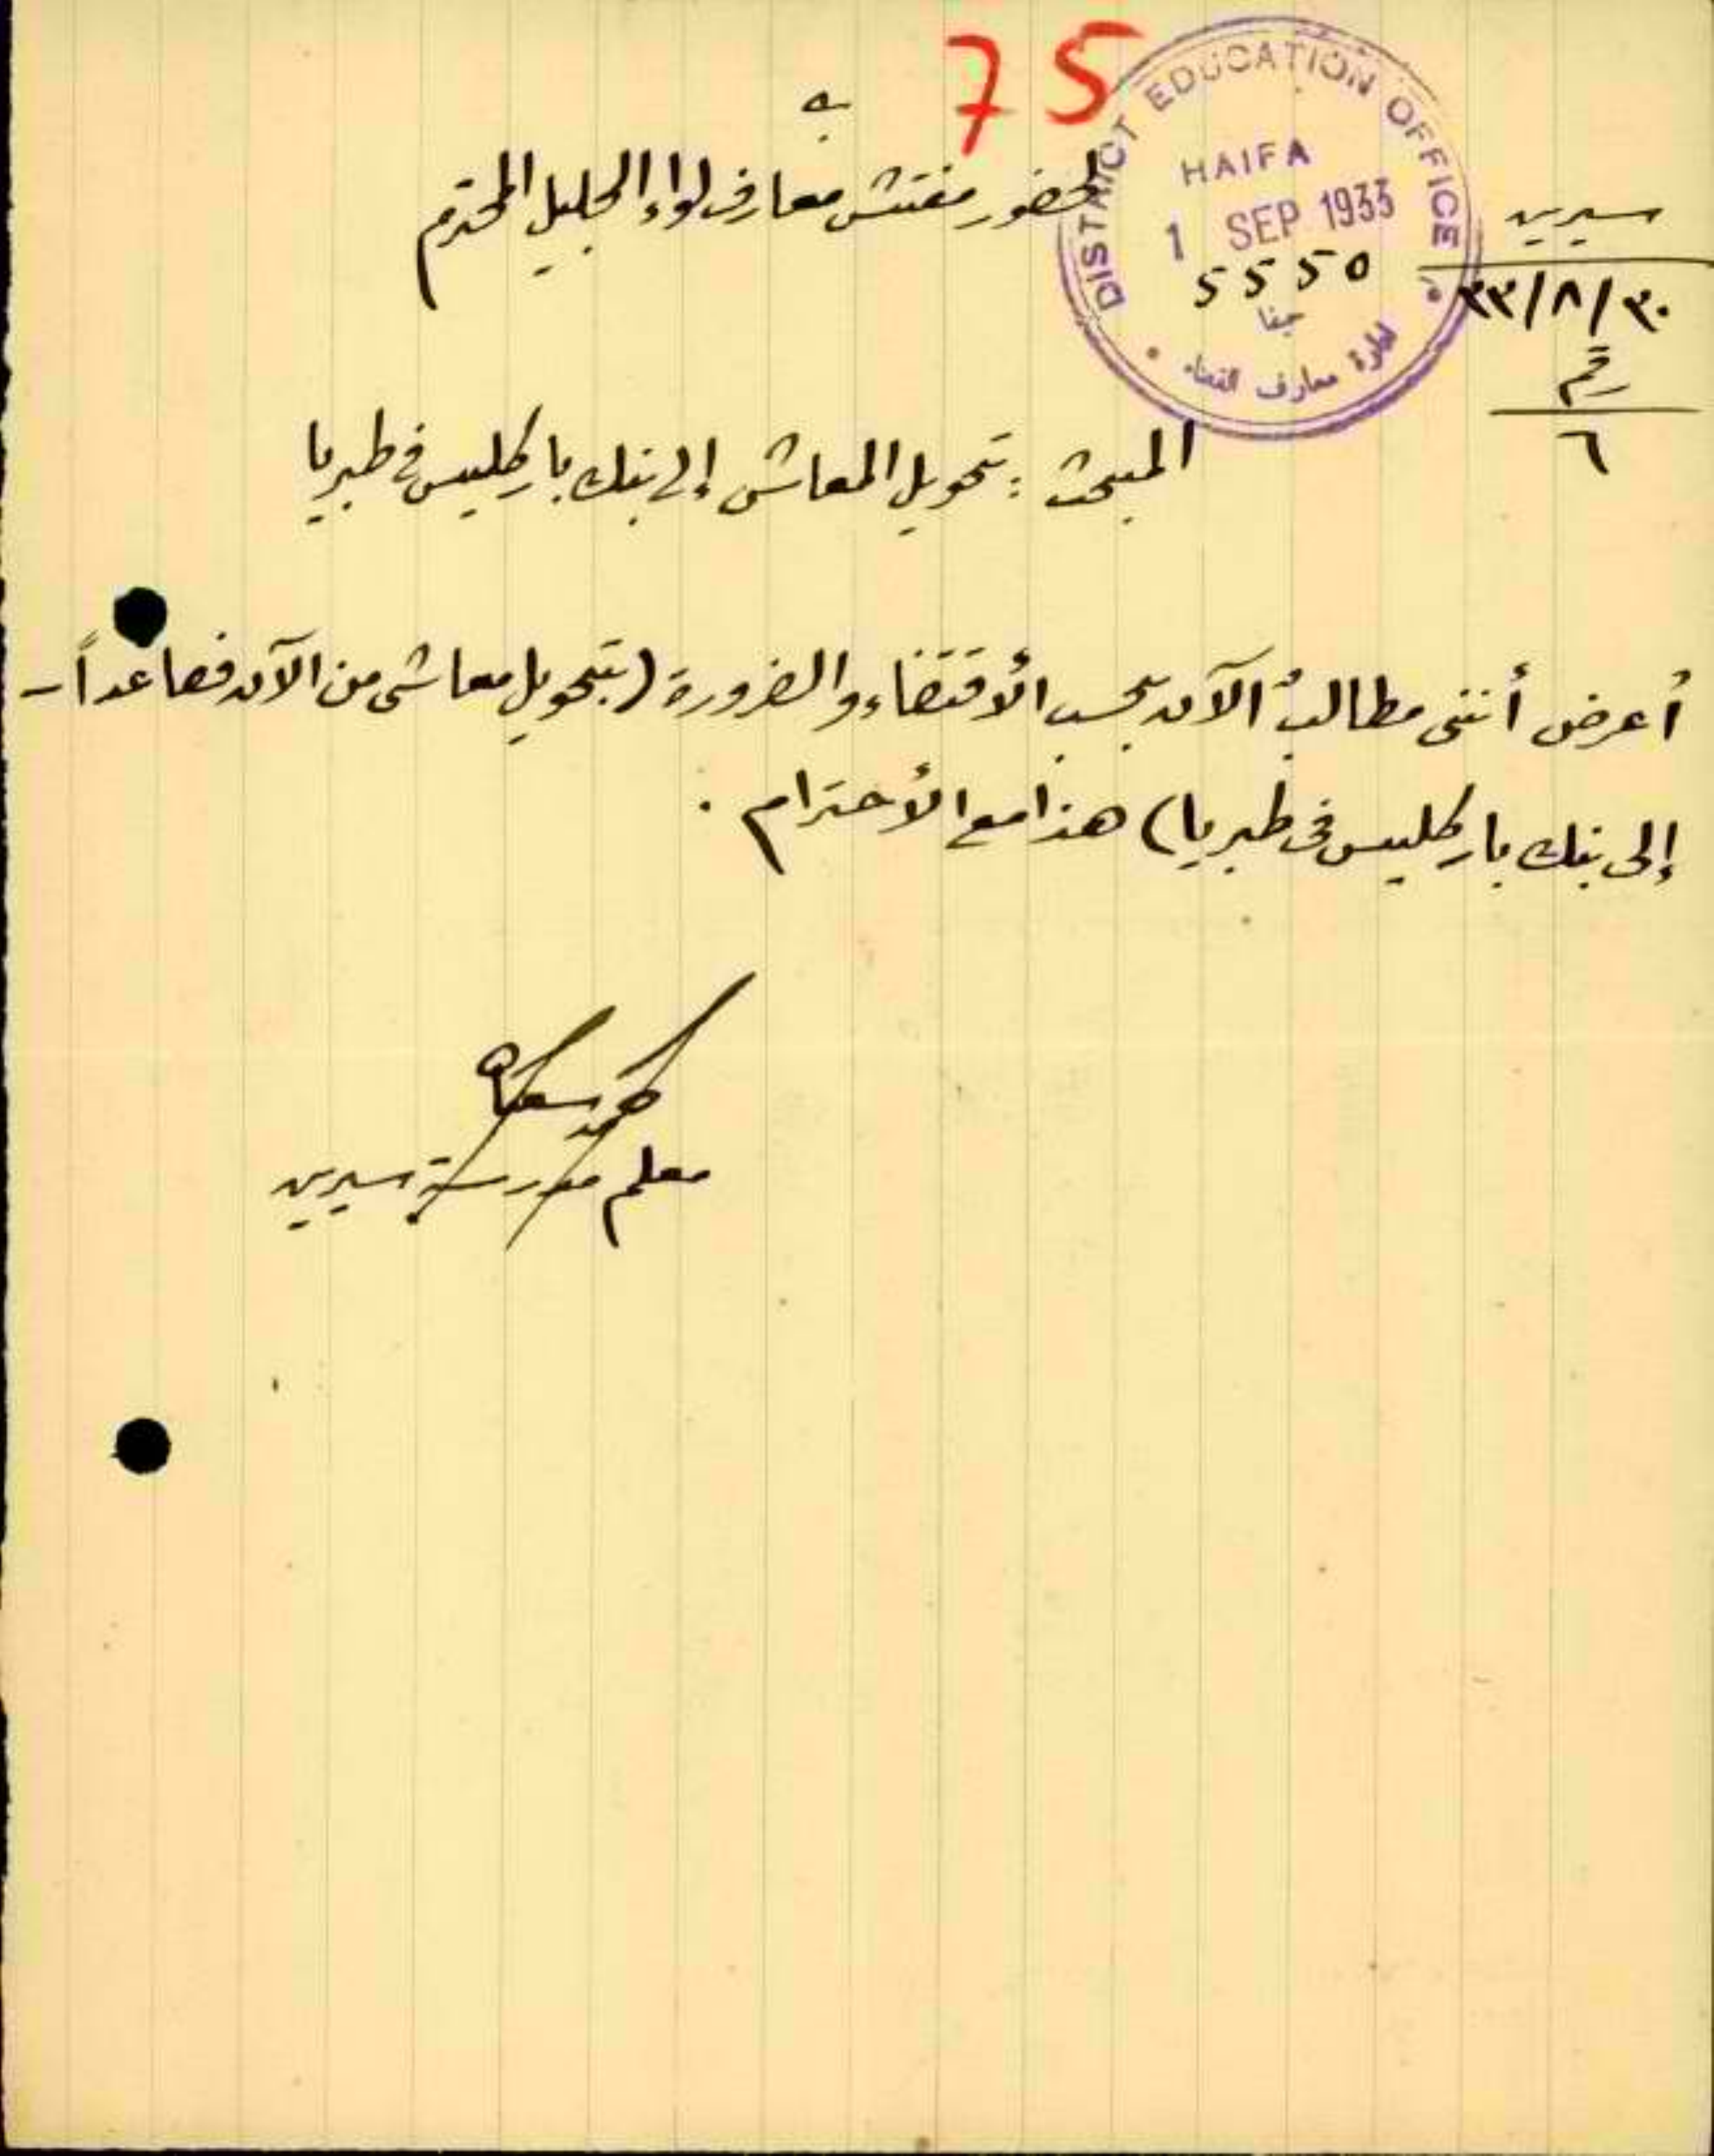 75
DISTRICT EDUCATION OFFICE
HAIFA
1 SEP 1933
5550
حيفا
ادارة معارف القضاء
سيرين
٣٠/٨/٣٣
رقم
٦
لحضور مفتش معارف لواء الجليل المحترم
المبحث : تحويل المعاش إلى بنك باركليس في طبريا
أعرض أننى مطالبٌ الآن بحسب الأقتضاء والضرورة (بتحويل معاشى من الآن فصاعداً -
إلى بنك باركليس فى طبريا) هذا مع الأحترام .
معلم مدرسة سيرين